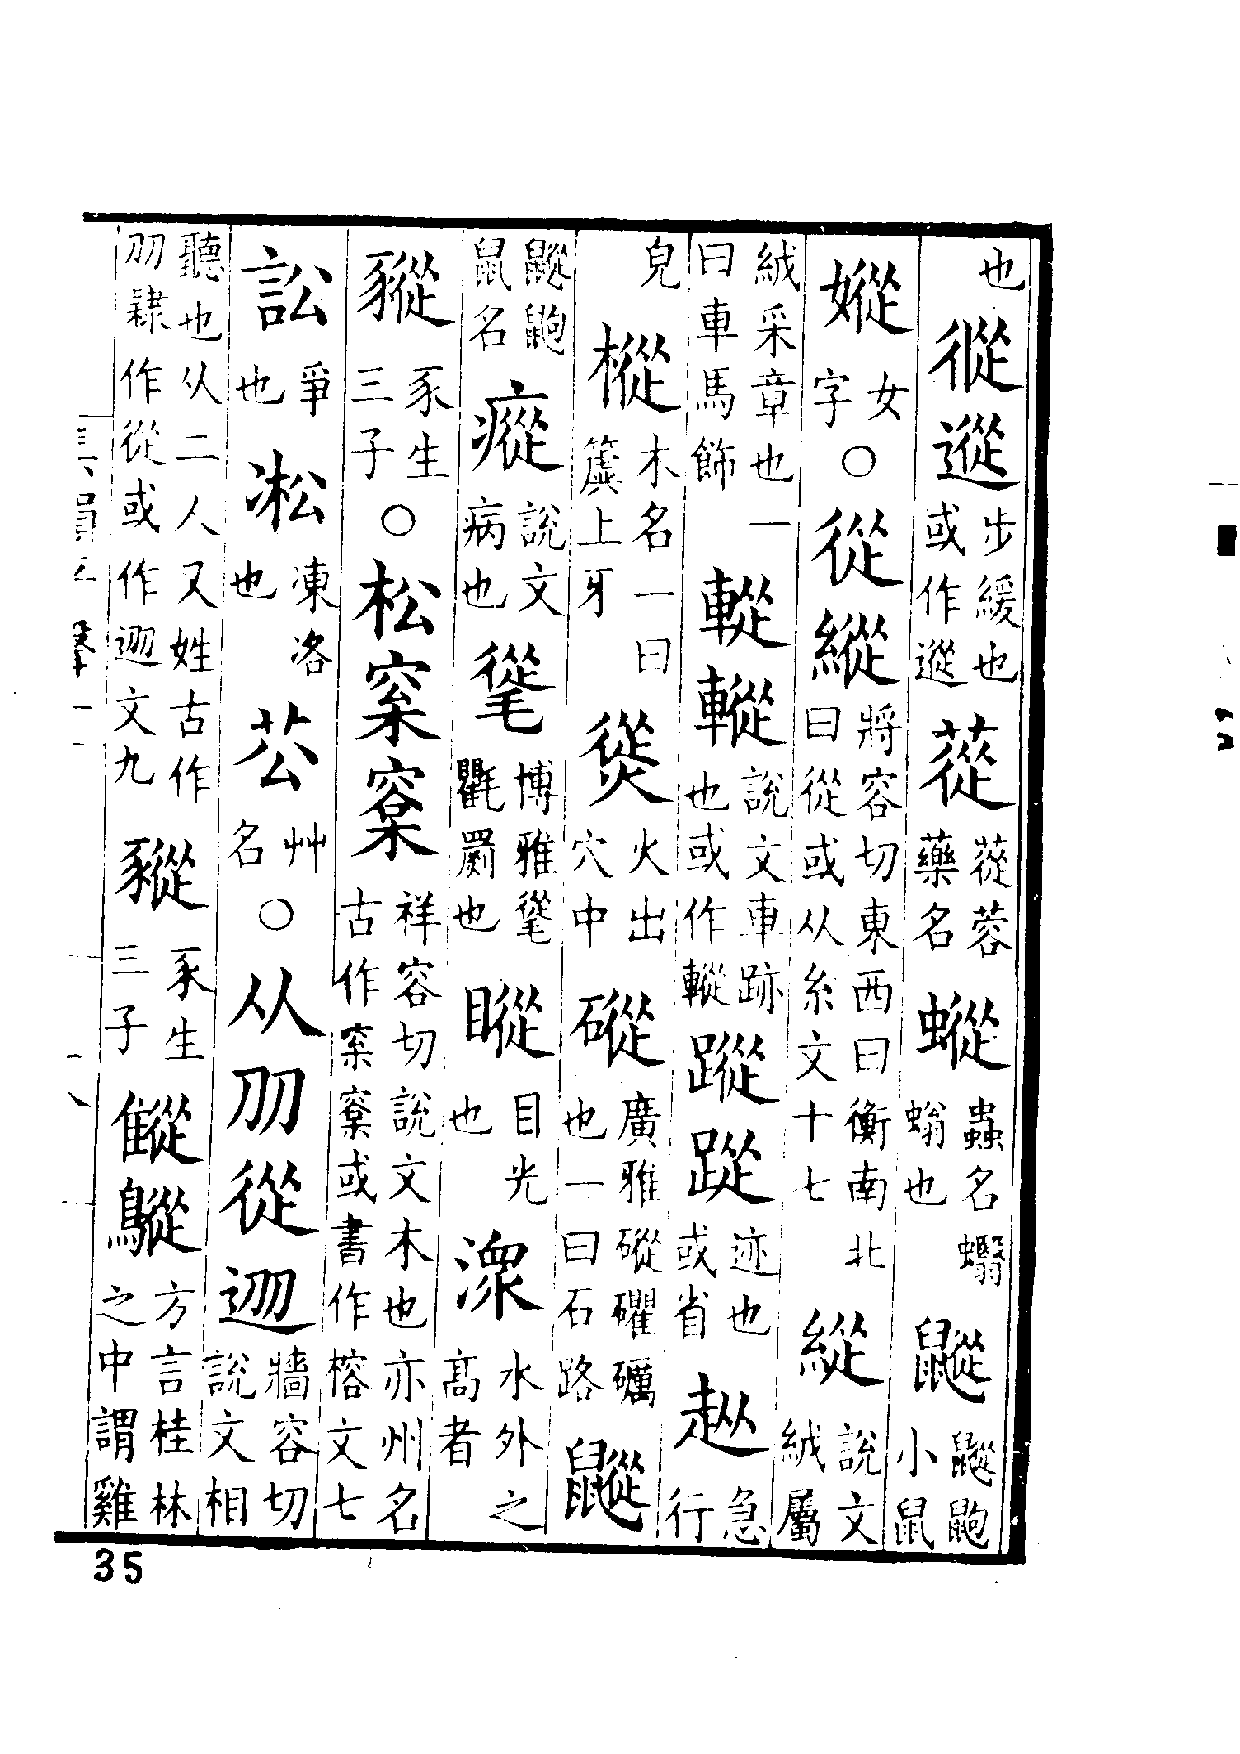 也 步緩也或作 蓯 蓯蓉藥名 蟲名蠮螉也 小鼠
女字○從縱 將容切東西曰衡南北曰從或从糸文十七 說文絨屬
絨采章也一曰車馬飾 說文車跡也或作 蹤 迹也或省 急行
皃 樅 木名一曰簴上牙 熧 火出穴中 磫 廣雅磫礪也一曰石路
鼠名 瘲 說文病也 博雅也 瞛 目光也 潨 水外之高者
豵 豕生三子○松 祥容切說文木也亦州名古作或書作榕文七
訟 爭也 凇 凍洛也 艸名○从從 牆容切說文相
聽也从二人又姓古作隸作從或作文九 豵 豕生三子 方言桂林之中謂雞
集韻平聲一
35